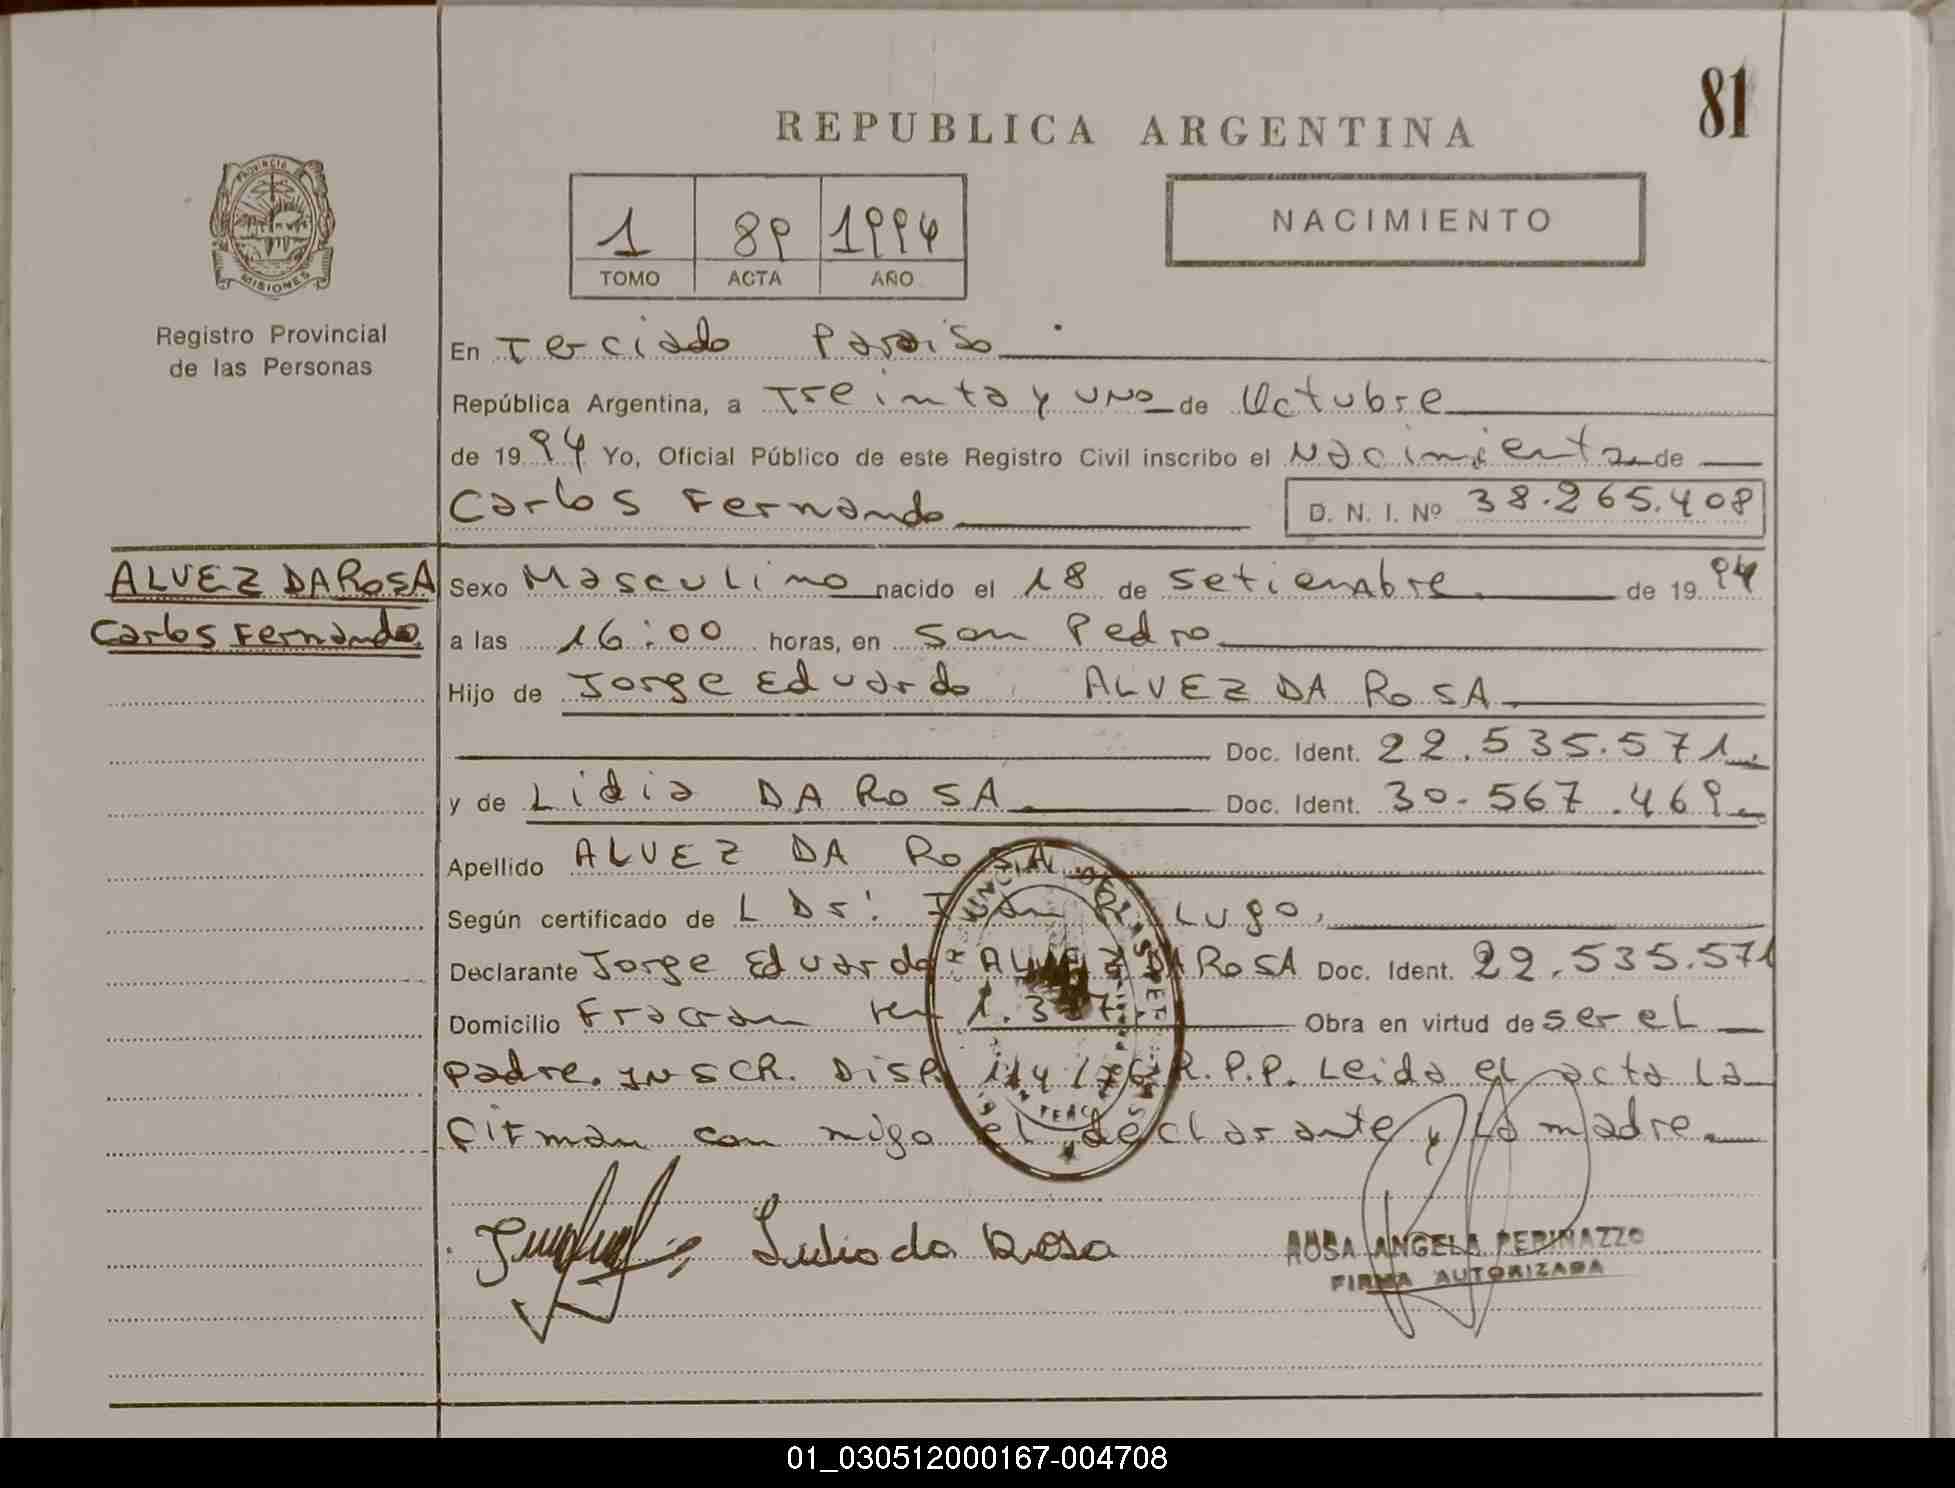 81
REPUBLICA ARGENTINA
PROVINCIA DE
MISIONES
Registro Provincial
de las Personas
1 89 1994
TOMO ACTA AÑO
NACIMIENTO
En Terciado Paraiso
República Argentina, a Treinta y uno de Octubre
de 1994 Yo, Oficial Público de este Registro Civil inscribo el Nacimiento de
Carlos Fernando D. N. I. Nº 38.265.408
ALVEZ DA ROSA
Carlos Fernando
Sexo Masculino nacido el 18 de Setiembre de 1994
a las 16:00 horas, en San Pedro
Hijo de Jorge Eduardo ALVEZ DA ROSA
Doc. Ident. 22.535.571
y de Lidia DA ROSA Doc. Ident. 30.567.469
Apellido ALVEZ DA ROSA
Según certificado de L Dr: Lugo.
Declarante Jorge Eduardo ALVEZ DA ROSA Doc. Ident. 22.535.571
Domicilio Fracran Obra en virtud de ser el
padre. INSCR. Disp. 114/76 R.P.P. Leida el acta la
firman con migo el declarante y la madre.
Lidia da Rosa
ROSA ANGELA PERINAZZO
FIRMA AUTORIZADA
01_030512000167-004708